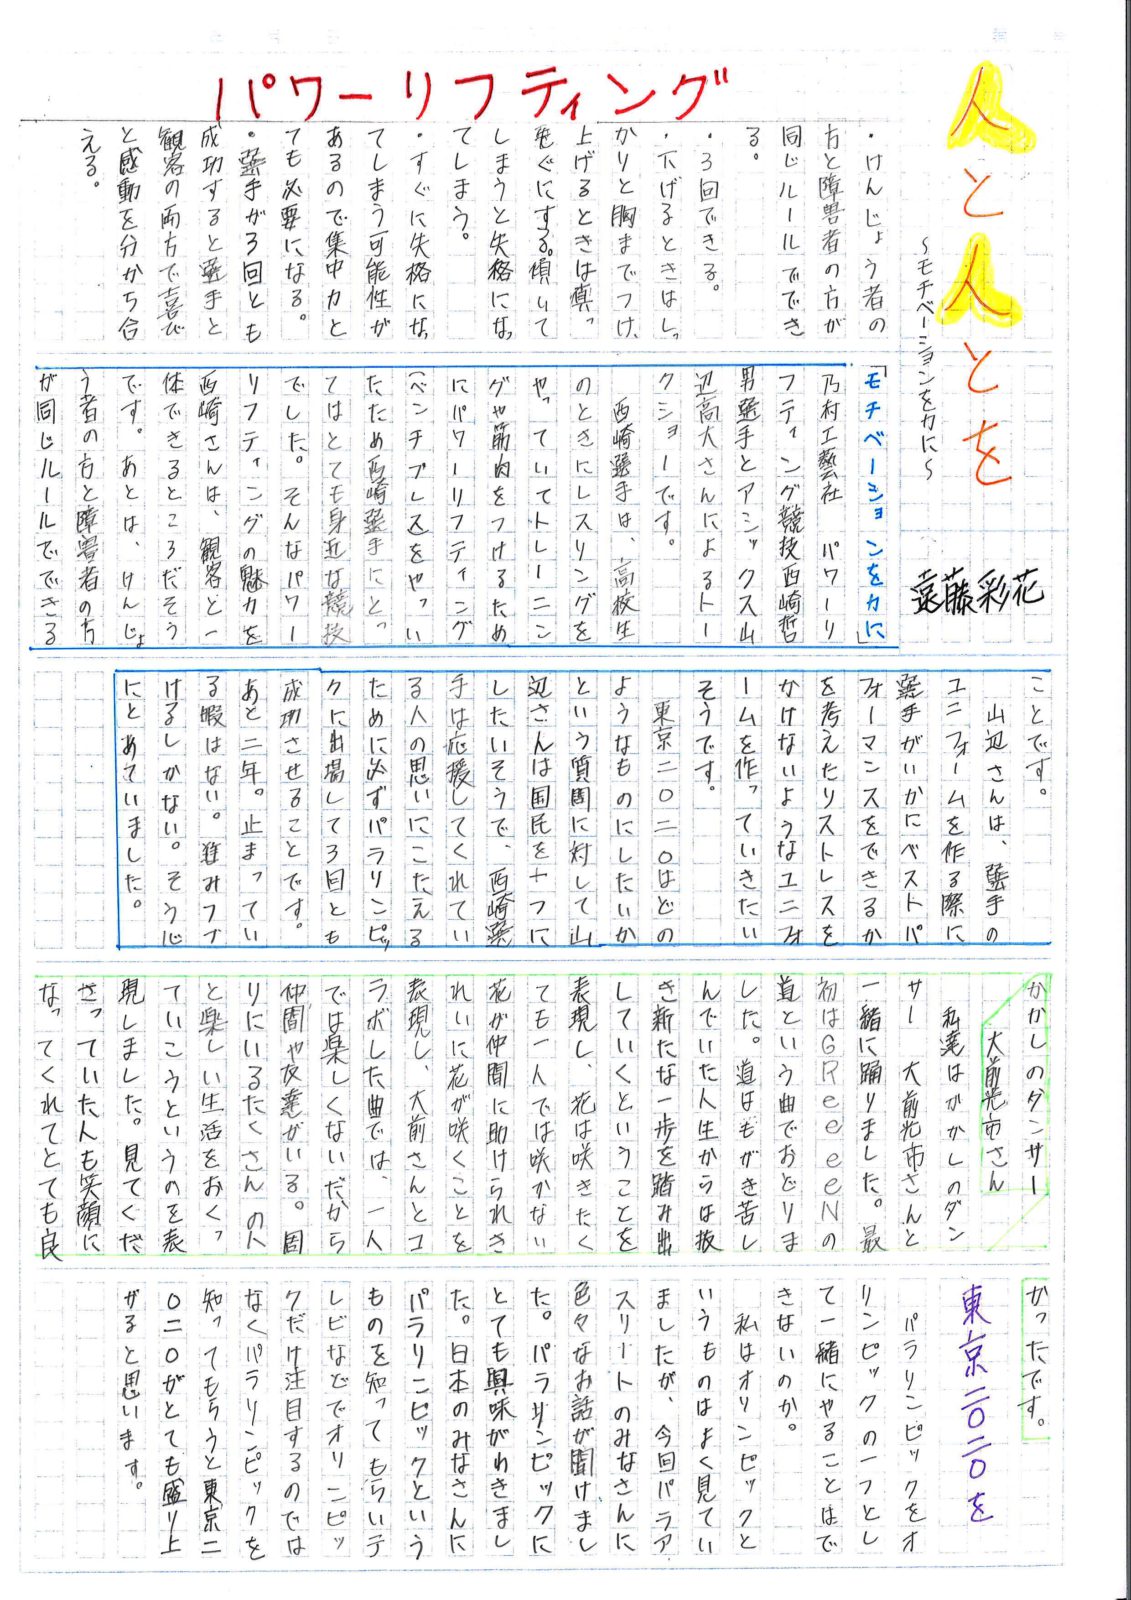 人と人とを
～モチベーションを力に～
遠藤彩花
パワーリフティング
・けんじょう者の
方と障害者の方が
同じルールででき
る。
・3回できる。
・下げるときはしっ
かりと胸までつけ、
上げるときは真っ
直ぐにする。傾いて
しまうと失格になっ
てしまう。
・すぐに失格になっ
てしまう可能性が
あるので集中力と
ても必要になる。
・選手が3回とも
成功すると選手と
観客の両方で喜び
と感動を分かち合
える。
「モチベーションを力に」
乃村工藝社　パワーリ
フティング競技西崎哲
男選手とアシックス山
辺高大さんによるトー
クショーです。
西崎選手は、高校生
のときにレスリングを
やっていてトレーニン
グや筋肉をつけるため
にパワーリフティング
(ベンチプレス)をやってい
たため西崎選手にとっ
てはとても身近な競技
でした。そんなパワー
リフティングの魅力を
西崎さんは、観客と一
体できるところだそう
です。あとは、けんじょ
う者の方と障害者の方
が同じルールでできる
ことです。
山辺さんは、選手の
ユニフォームを作る際に
選手がいかにベストパ
フォーマンスをできるか
を考えたりストレスを
かけないようなユニフォ
ームを作っていきたい
そうです。
東京二〇二〇はどの
ようなものにしたいか
という質問に対して山
辺さんは国民を十つに
したいそうで、西崎選
手は応援してくれてい
る人の思いにこたえる
ために必ずパラリンピッ
クに出場して3回とも
成功させることです。
あと二年。止まってい
る暇はない。進みつづ
けるしかない。そう心
にとめていました。
かかしのダンサー
大前光市さん
私達はかかしのダン
サー　大前光市さんと
一緒に踊りました。最
初はGReeeeNの
道という曲でおどりま
した。道はもがき苦し
んでいた人生からは抜
き新たな一歩を踏み出
していくということを
表現し、花は咲きたく
ても一人では咲かない
花が仲間に助けられき
れいに花が咲くことを
表現し、大前さんとコ
ラボした曲では、一人
では楽しくないだから
仲間や友達がいる。周
りにいるたくさんの人
と楽しい生活をおくっ
ていこうというのを表
現しました。見てくだ
さっていた人も笑顔に
なってくれてとても良
かったです。
東京二〇二〇を
パラリンピックをオ
リンピックの一つとし
て一緒にやることはで
きないのか。
私はオリンピックと
いうものはよく見てい
ましたが、今回パラア
スリートのみなさんに
色々なお話が聞けまし
た。パラリンピックに
とても興味がわきまし
た。日本のみなさんに
パラリンピックという
ものを知ってもらいテ
レビなどでオリンピッ
クだけ注目するのでは
なくパラリンピックを
知ってもらうと東京二
〇二〇がとても盛り上
がると思います。